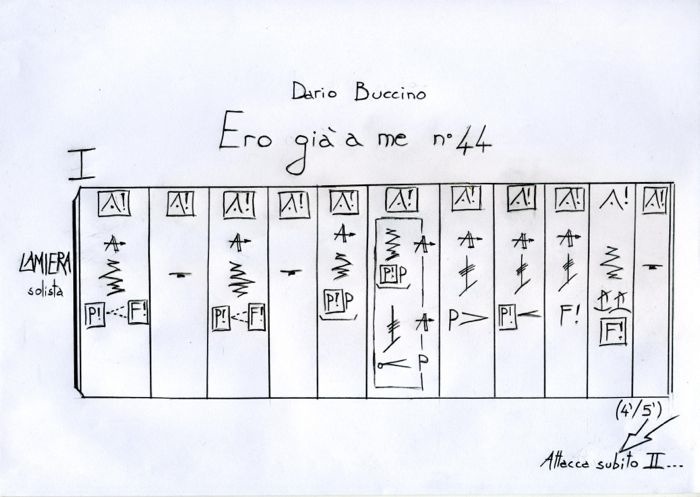 Dario Buccino
Ero già a me n° 44
I
A! A! A! A! A! A! A! A! A! A! A!
LAMIERA
solista
A A A A A A A A
P! P
A A
P! F! P! F! P! P A P P! F! F!
P
(4'/5')
Attacca subito II...